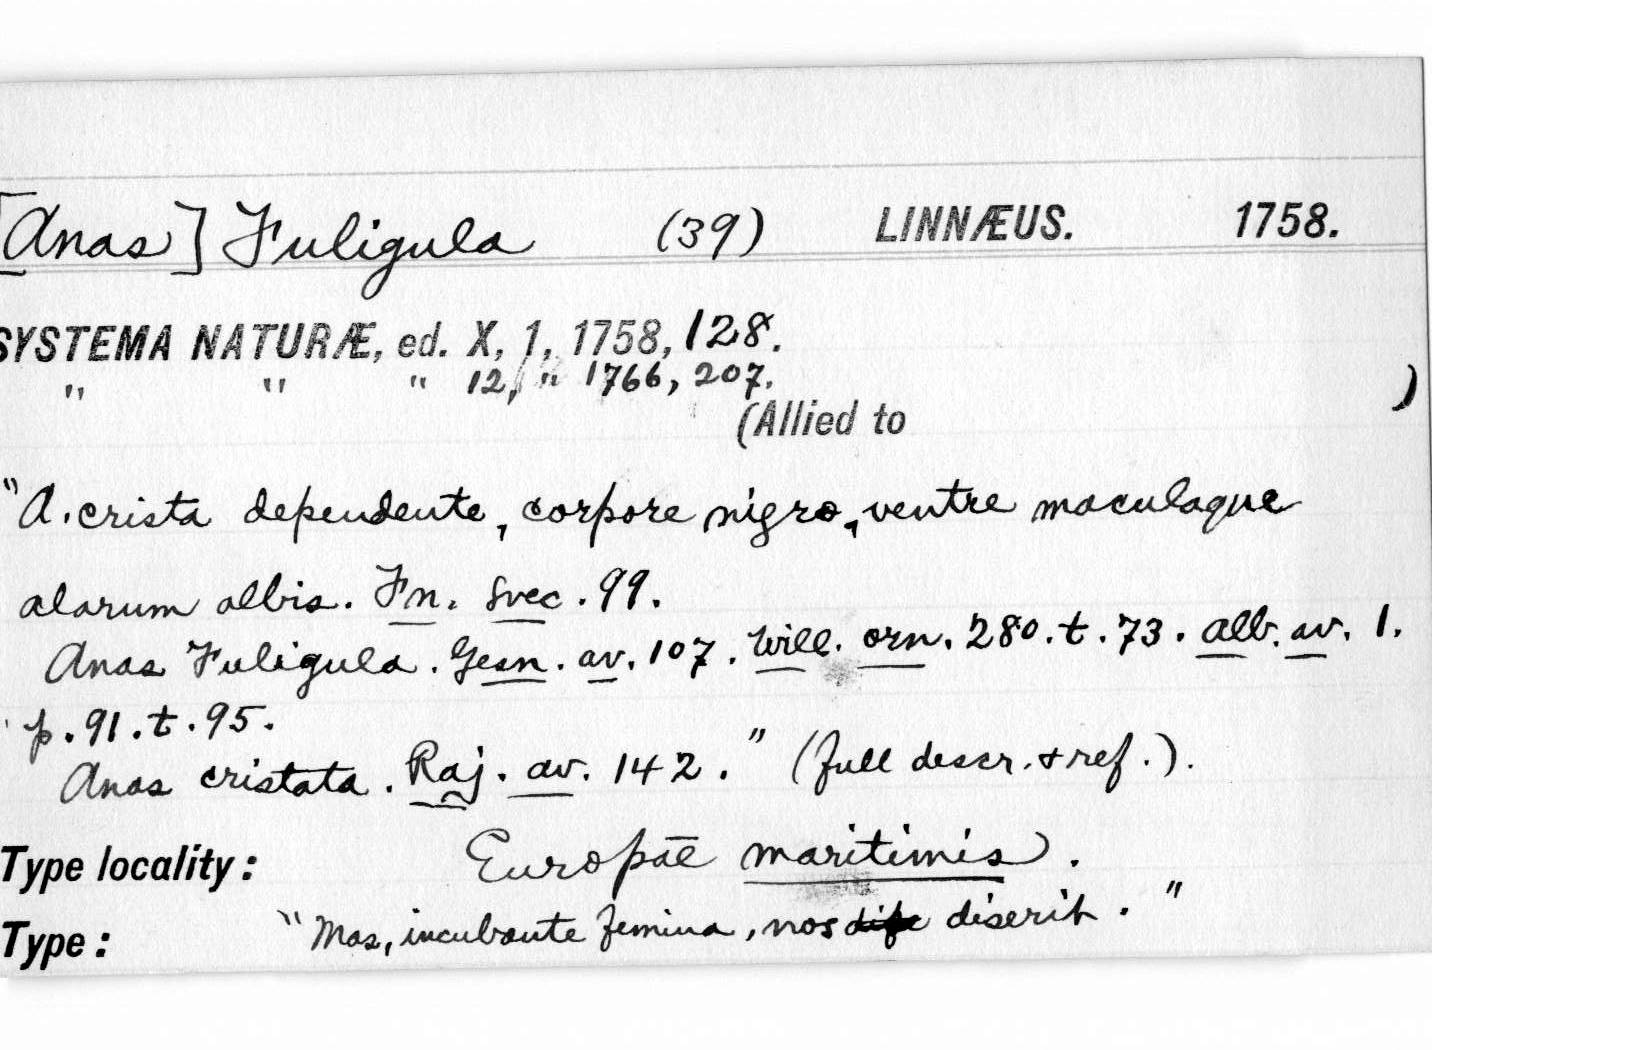 [Anas] Fuligula (39) LINNÆUS. 1758.
SYSTEMA NATURÆ, ed. X, 1, 1758, 128.
" " " 12, " 1766, 207.
(Allied to )
"A. crista dependente, corpore nigro, ventre maculaque
alarum albis. Fn. svec. 99.
Anas Fuligula. Gesn. av. 107. Will. orn. 280. t. 73. alb. av. 1.
p. 91. t. 95.
Anas cristata. Raj. av. 142." (full descr. & ref.).
Type locality: Europae maritimis.
Type: "Mas, incubante femina, nos diserit."